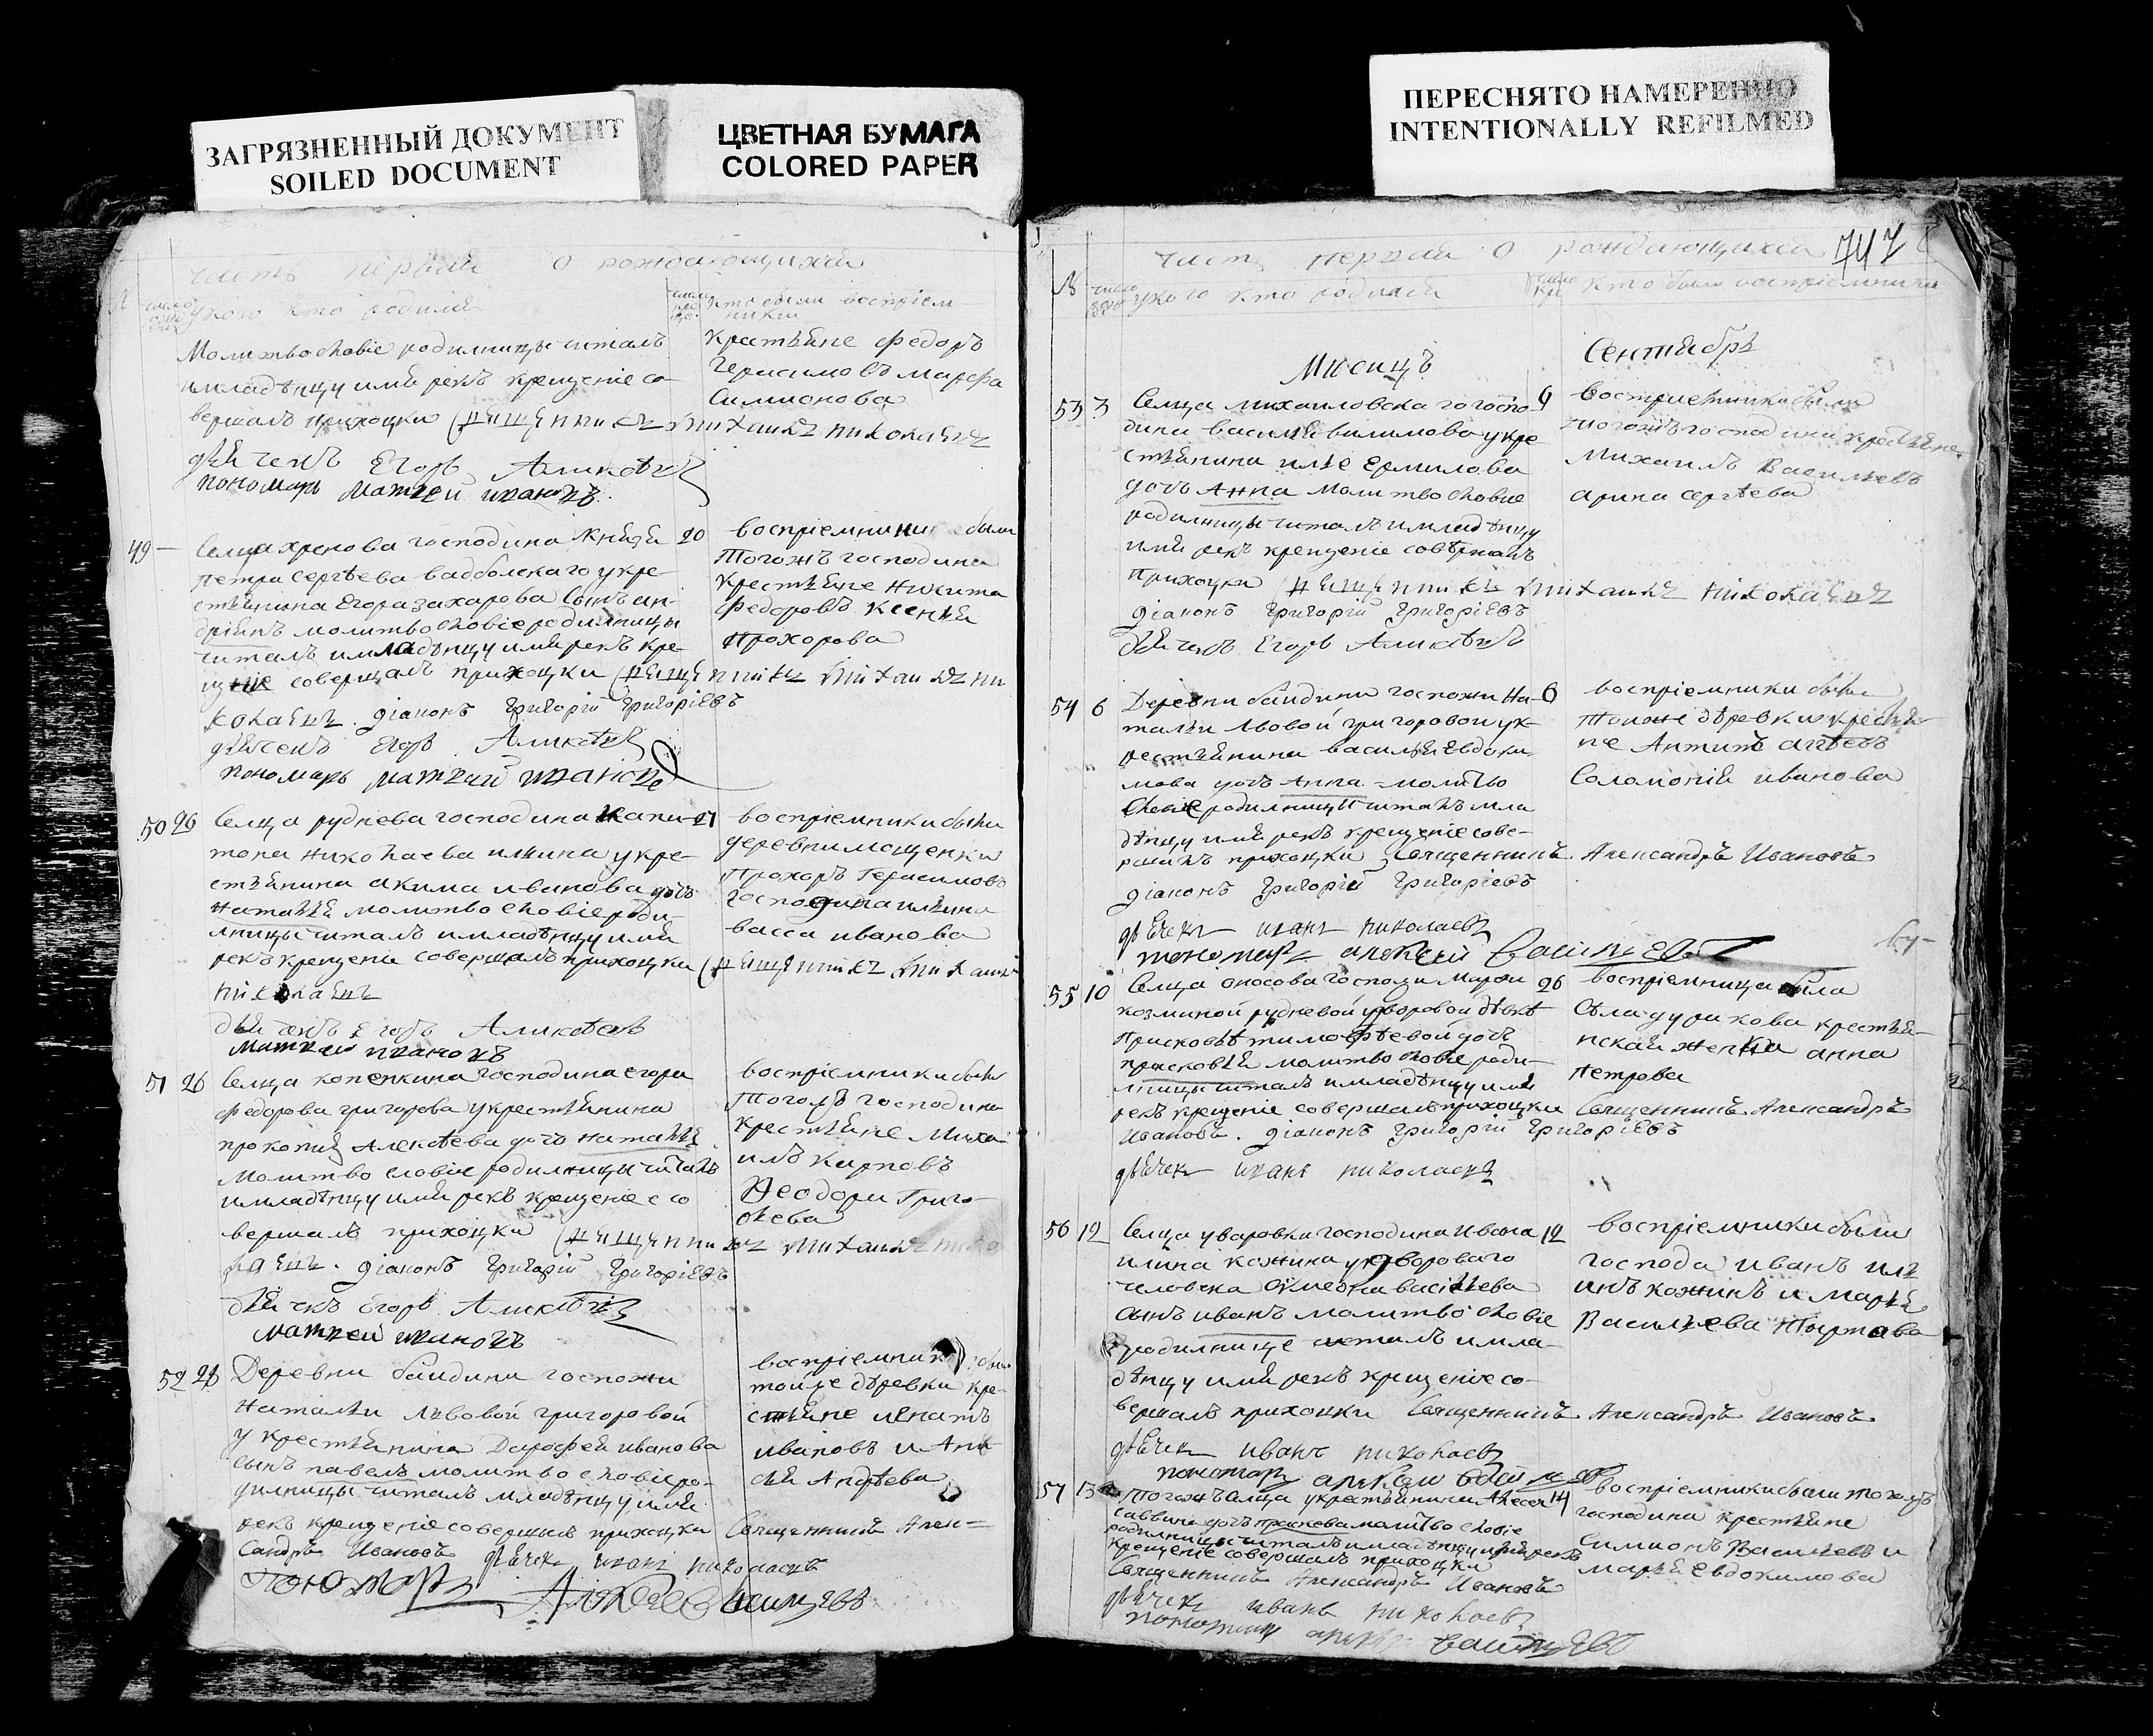 ЗАГРЯЗНЕННЫЙ ДОКУМЕНТ
SOILED DOCUMENT
ЦВЕТНАЯ БУМАГА
COLORED PAPER
ПЕРЕСНЯТО НАМЕРЕННО
INTENTIONALLY REFILMED
часть первая о рождающихся
у кого кто родился
кто были восприем
ники
Молитвословіе родилницы читалъ
имладѣнцу имя рекъ крещеніе со
вершалъ приходцки священникъ михаилъ николаевъ
дьячекъ Егоръ Алиѯѣевъ
пономарь матвей ивановъ
крестьяне федоръ
Герасимовъ марфа
Симионова
49 — Селца хренова господина князя 20
петра сергѣева вадболскаго укре
стьянина Егора захарова сынъ ан
дріянъ молитвословіе родилницы
читалъ имладѣнцу имя рекъ кре
щеніе совершалъ приходцки священникъ михаилъ ни
колаевъ. діаконъ Григорій Григоріевъ
дьячекъ Егоръ Алиѯѣевъ
пономарь матвей ивановъ
восприемники были
тогожъ господина
крестьяне никита
федоровъ ксенья
прохорова
50 26 Селца руднева господина капи 27
тона николаева ильина укре
стьянина акима иванова дочь
наталья молитвословіе роди
лницы читалъ имладѣнцу имя
рекъ крещеніе совершалъ приходцки священникъ михаилъ
николаевъ
дьячекъ Егоръ Алиѯѣевъ
матвей ивановъ
восприемники были
деревни мощенки
Прохоръ Герасимовъ
господина ильина
васса иванова
51 26 Селца копенкина господина егора
федорова григорова укрестьянина
прокопия Алексѣева дочь наталья
молитвословіе родилницы читалъ
имладѣнцу имя рекъ крещеніе со
вершалъ приходцки священникъ михаилъ нико
лаевъ. діаконъ Григорій Григоріевъ
дьячекъ Егоръ Алиѯѣевъ
матвей ивановъ
восприемники были
тогожъ господина
крестьяне миха
илъ карповъ
Феодора Григо
рьева
52 28 Деревни баидина госпожи
натальи львовой григоровой
у крестьянина Дарофея иванова
сынъ павелъ молитвословіе ро
дилницы читалъ младѣнцу имя
рекъ крещеніе совершалъ приходцки Священникъ Алек=
сандръ Ивановъ дьячекъ иванъ николаевъ
пономарь Алексей Васильевъ
восприемники были
тойже дѣревни кре
стьяне игнатъ
ивановъ и
Андрѣева
747
часть первая о рождающихся
№ у кого кто родился кто были восприемники
Мѣсяцъ Сентябрь
53 3 Селца михаиловска го госпо 4
дина василья вилимова укре
стьянина ильи ермилова
дочь Анна молитвословіе
родилницы читалъ имладѣнцу
имя рекъ крещеніе совершалъ
приходцки священникъ михаилъ николаевъ
діаконъ Григорій Григоріевъ
дьячекъ Егоръ Алиѯѣевъ
восприемники были
тогожъ господина крестьяне
Михаилъ Васильевъ
арина сергѣева
54 6 Деревни баидина госпожи На 6
тальи львовой григоровой ук
рестьянина василья евдоки
мова дочь Анна молитво
словіе родилницы читалъ мла
дѣнцу имя рекъ крещеніе сове
ршалъ приходцки Священникъ Александръ Ивановъ
діаконъ Григорій Григоріевъ
дьячекъ иванъ николаевъ
пономарь алексей Васильевъ
восприемники были
тойже дѣревни крестья
не Антипъ агѣевъ
Соломонія иванова
55 10 Селца оносова госпожи Марьи 26
козминой рудневой у дворовой дѣвки
Прасковьи тимофѣевой дочь
прасковья молитвословіе роди
лницы читалъ имладѣнцу имя
рекъ крещеніе совершалъ приходцки Священникъ Александръ
Ивановъ. діаконъ Григорій Григоріевъ
дьячекъ иванъ николаевъ
восприемница была
Села дурикова крестья
нская женка анна
петрова
56 12 Селца уваровки господина Ивана 12
илича кожина у дворового
человека Симеона васильева
сынъ иванъ молитвословіе
родилнице читалъ имла
дѣнцу имя рекъ крещеніе со
вершалъ приходцки Священникъ Александръ Ивановъ
дьячекъ иванъ николаевъ
пономарь алексей Васильевъ
восприемники были
господа иванъ иль
инъ кожинъ и марья
Васильева
57 13 Тогожъ селца у крестьянина 14
саввина дочь праскева молитвословіе
родилницы читалъ имладѣнцу имя рекъ
крещеніе совершалъ приходцки
Священникъ Александръ Ивановъ
дьячекъ иванъ николаевъ
пономарь алексей Васильевъ
восприемники были тогожъ
господина крестьяне
Симионъ Васильевъ и
марья евдокимова